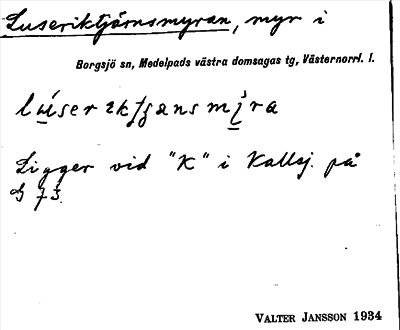 Luseriktjärnsmyran, myr i
Borgsjö sn, Medelpads västra domsagas tg, Västernorrl. l.
Ligger vid "K" i Kallsj. på
73.
VALTER JANSSON 1934